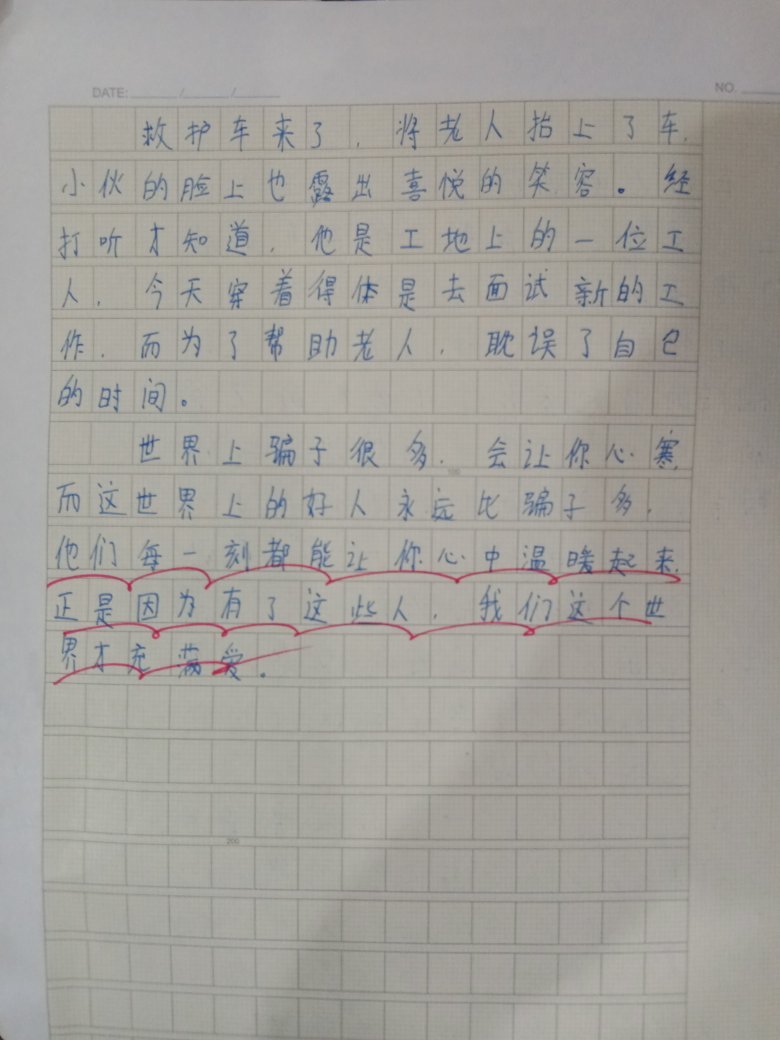 DATE: / /
NO.
救护车来了，将老人抬上了车，
小伙的脸上也露出喜悦的笑容。经
打听才知道，他是工地上的一位工
人，今天穿着得体是去面试新的工
作，而为了帮助老人，耽误了自己
的时间。
世界上骗子很多，会让你心寒
100
而这世界上的好人永远比骗子多，
他们每一刻都能让你心中温暖起来，
正是因为有了这些人，我们这个世
界才充满爱。
200